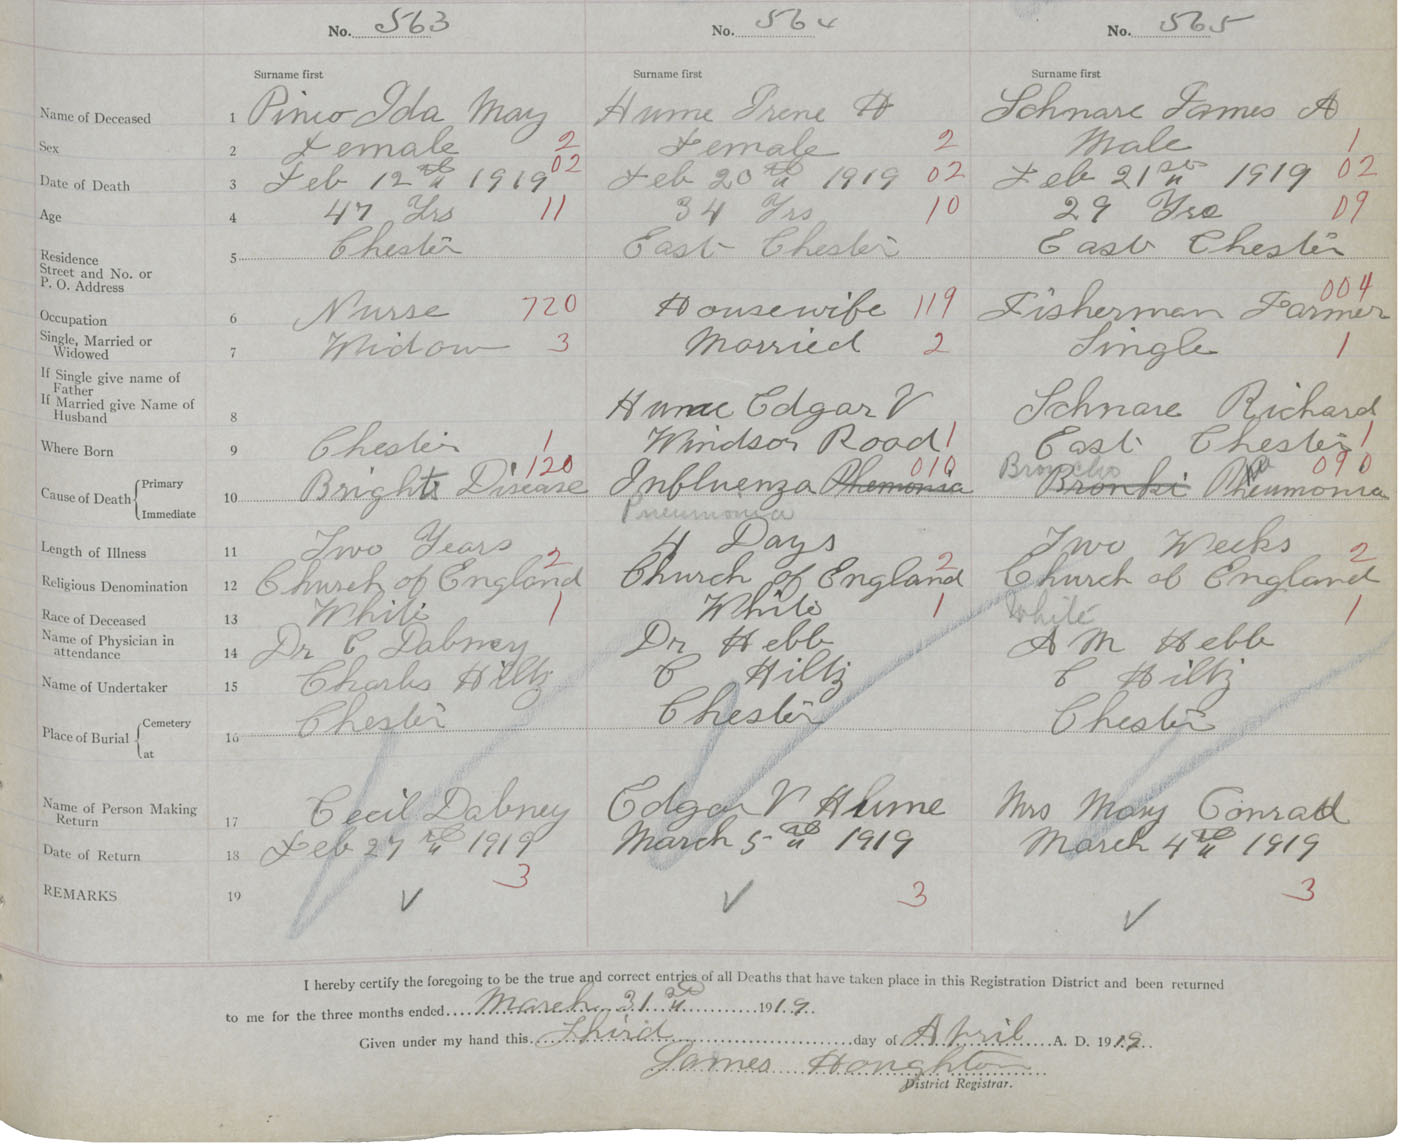 No. 563 No. 564 No. 565
Surname first Surname first Surname first
Name of Deceased 1 Pinio Ida May Hume Irene H Schnare James A
Sex 2 Female 2 Female 2 Male 1
Date of Death 3 Feb 12th 1919 02 Feb 20th 1919 02 Feb 21st 1919 02
Age 4 47 Yrs 11 34 Yrs 10 29 Yrs 09
Residence Street and No. or P. O. Address 5 Chester East Chester East Chester
Occupation 6 Nurse 720 Housewife 119 Fisherman Farmer 004
Single, Married or Widowed 7 Widow 3 Married 2 Single 1
If Single give name of Father
If Married give Name of Husband 8 Hume Edgar V Schnare Richard
Where Born 9 Chester 1 Windsor Road 1 East Chester 1
Cause of Death Primary Immediate 10 Brights Disease 120 Influenza Phemonia Pneumonia 010 Broncho Bronki Pneumonia 090
Length of Illness 11 Two Years 4 Days Two Weeks
Religious Denomination 12 Church of England 2 Church of England 2 Church of England 2
Race of Deceased 13 White 1 White 1 White 1
Name of Physician in attendance 14 Dr C Dabney Dr Hebb A M Hebb
Name of Undertaker 15 Charles Hiltz C Hiltz C Hiltz
Place of Burial Cemetery at 16 Chester Chester Chester
Name of Person Making Return 17 Cecil Dabney Edgar V Hume Mrs Mary Conrad
Date of Return 18 Feb 27th 1919 March 5th 1919 March 4th 1919
REMARKS 19 3 3 3
I hereby certify the foregoing to be the true and correct entries of all Deaths that have taken place in this Registration District and been returned
to me for the three months ended March 31st 1919
Given under my hand this Third day of April A. D. 1919
James Houghton
District Registrar.